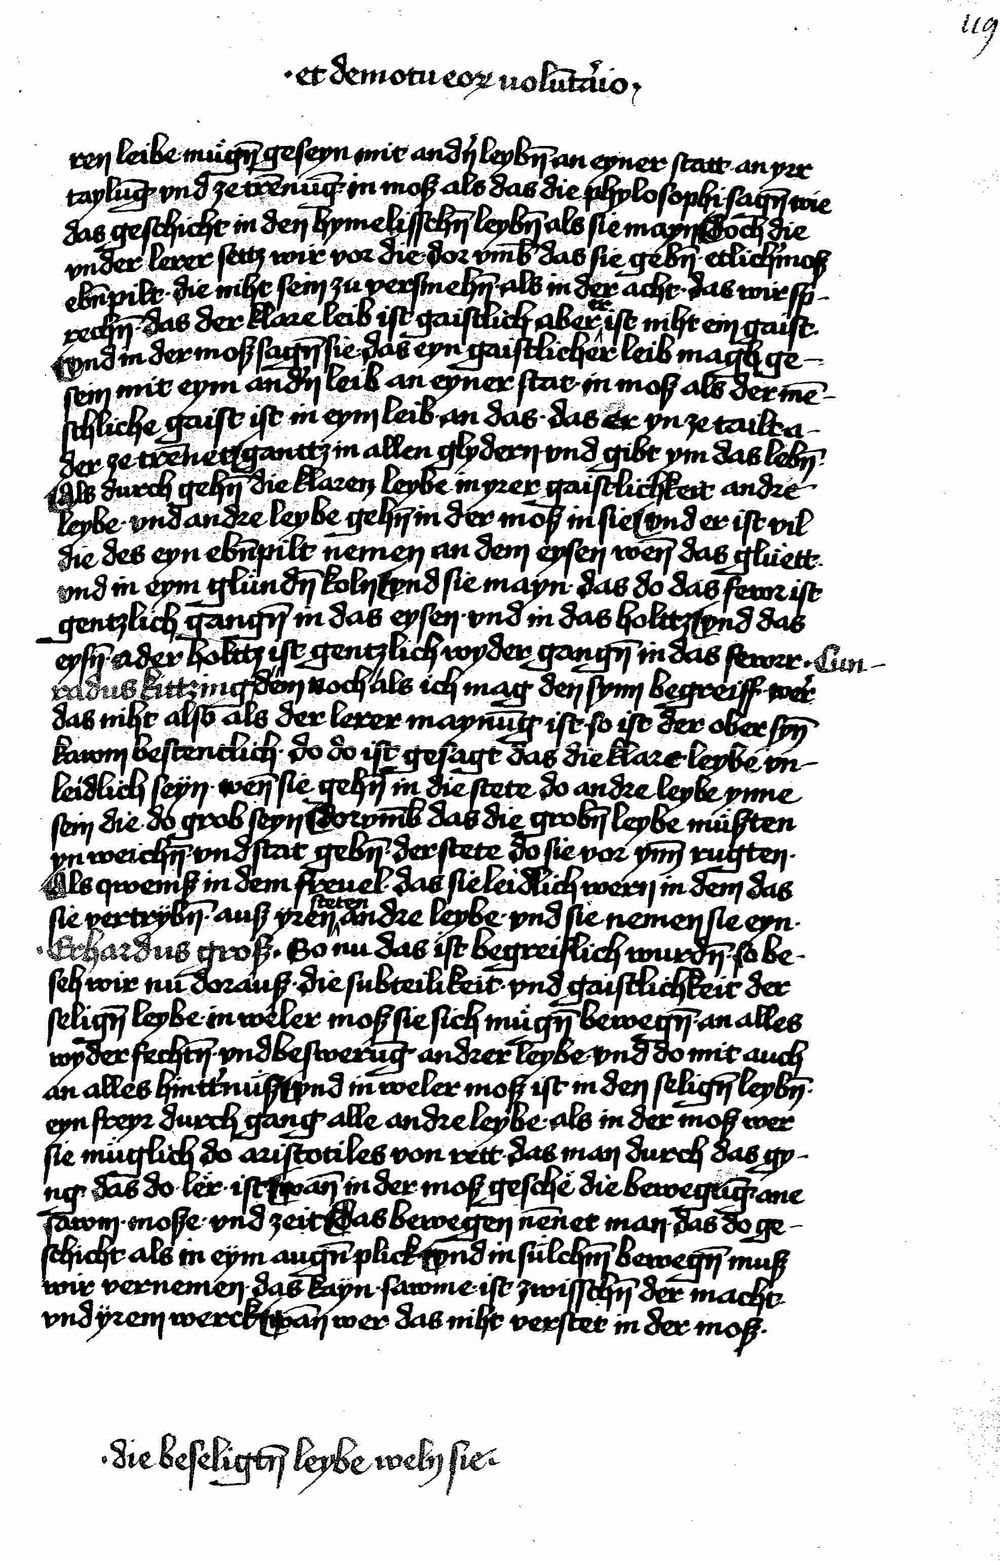 119
·et de motu eoꝝ volūta͛io·
ren leibe mügn̄ geseyn mit andn̄ leybn̄ an eyner statt an yrr
taylūg vnd ze trēnūg in moß als das die phylosophi sagn̄ wie
das geschicht in den hymelisschn̄ leybn̄ als sie mayn Doch die
vnder lerer setz wir vor die dor vmb das sie gebn̄ etlich moß
ebn̄pilt die niht sein zu versmehn̄ als in der acht das wir sp-
rechn̄ das der klare leib ist gaistlich aber er ist niht ein gaist
Vnd in der moß sagn̄ sie das eyn gaistlicher leib mag ge-
sein mit eym andn̄ leib an eyner stat in moß als der mē-
schliche gaist ist in eym leib an das das er yn ze tailt a-
der ze trēnet ganttz in allen glydern vnd gibt ym das lebn̄
Als durch gehn̄ die klaren leybe in yrer gaistlichkeit andre
leybe vnd andre leybe gehn̄ in der moß in sie Vnd er ist vil
die des eyn ebn̄pilt nemen an dem eysen wen̄ das glüett
vnd in eym glündn̄ koln Vnd sie mayn das do das fewr ist
gentzlich gangn̄ in das eysen vnd in das holttz Vnd das
eysn̄ ader holttz ist gentzlich wyder gangn̄ in das fewrr · Cun-
radus kittzing dem noch als ich mag den synn begreiff wer
das niht also als der lerer maynūg ist so ist der ober syn̄
kawm bestentlich do do ist gesagt das die klare leybe vn-
leidlich seyn wen̄ sie gehn̄ in die stete do andre leybe ynne
sein die do grob seyn Dorvmb das die grobn̄ leybe müßten
yn weichn̄ vnd stat gebn̄ der stete do sie vor ynn rugten
Als qwemß in dem freuel das sie leidlich wern in dem das
sie vertrybn̄ auß yren steten andre leybe vnd sie nemen sie eyn
·Erhardus groß · So nu das ist begreiflich wurdn̄ so be-
seh wir nu dorauß die subteilikeit vnd gaistlichkeit der
selign̄ leybe in weler moß sie sich mügn̄ bewegn̄ an alles
wyder fechtn̄ vnd beswerūg andrer leybe vnd do mit auch
an alles hintternüß Vnd in weler moß ist in den selign̄ leybn̄
eyn freyr durch gang alle andre leybe als in der moß wer
sie müglich do aristotiles von rett das man durch das gy-
ng das do ler ist Wan̄ in der moß gesche die bewegūg ane
sawm moße vnd zeit Das bewegen nēnet man das do ge-
schicht als in eym augn̄ plick Vnd in sülchm̄ bewegn̄ muß
wir vernemen das kayn sawme ist zwisschn̄ der macht
vnd yrem werck Wan̄ wer das niht verstet in der moß·
·die beseligtn̄ leybe weln sie·